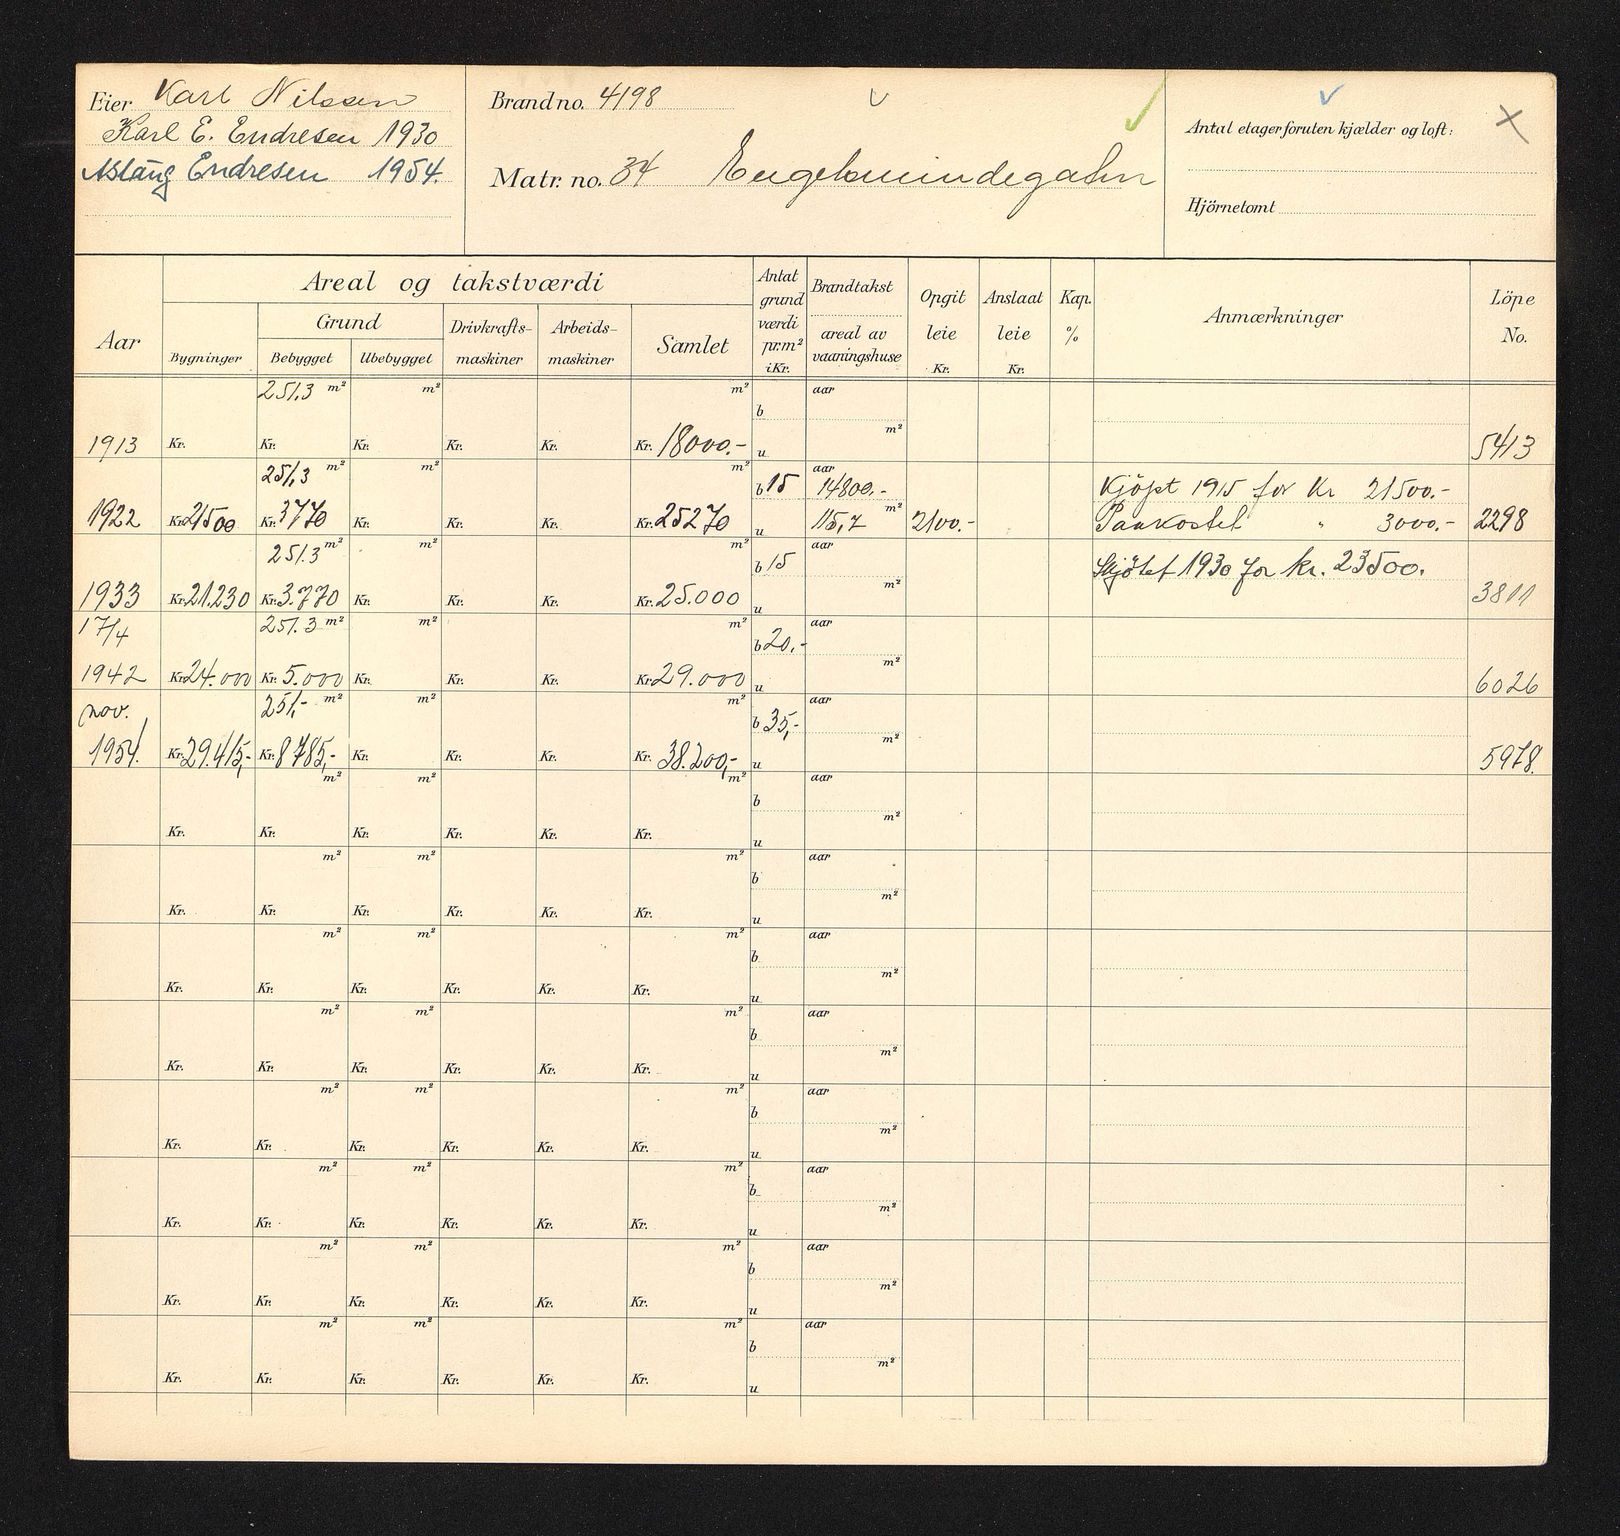 Eier Karl Nilssen
Karl E. Endresen 1930
Aslaug Endresen 1954.
Brand no. 4198
Matr. no. 34 Engelsmindegaten
Antal etager foruten kjælder og loft:
Hjörnetomt
Aar
Areal og takstværdi
Bygninger
Grund
Bebygget
Ubebygget
Drivkrafts-
maskiner
Arbeids-
maskiner
Samlet
Antat
grund
værdi
pr.m²
i Kr.
Brandtakst
areal av
vaaningshuse
Opgit
leie
Kr.
Anslaat
leie
Kr.
Kap.
%
Anmærkninger
Löpe
No.
251,3 m² m² m² aar
b
m²
1913 Kr. Kr. Kr. Kr. Kr. Kr. 18000.- u 5413
251,3 m² m² m² aar
b 15 14800.- Kjöpt 1915 for Kr 21500.-
m²
1922 Kr. 21500 Kr. 3770 Kr. Kr. Kr. Kr. 25270 u 115,7 2100.- Paakostet " 3000.- 2298
251.3 m² m² m² aar
b 15 Skjötet 1930 for kr. 23500.
m²
1933 Kr. 21.230 Kr. 3.770 Kr. Kr. Kr. Kr. 25.000 u 3811
17/4 251.3 m² m² m² aar
b 20.-
m²
1942 Kr. 24.000 Kr. 5.000 Kr. Kr. Kr. Kr. 29.000 u 6026
nov. 251,- m² m² m² aar
b 35,-
m²
1954. Kr. 29.415,- Kr. 8785,- Kr. Kr. Kr. Kr. 38.200,- u 5978.
m² m² m² aar
b
m²
Kr. Kr. Kr. Kr. Kr. Kr. u
m² m² m² aar
b
m²
Kr. Kr. Kr. Kr. Kr. Kr. u
m² m² m² aar
b
m²
Kr. Kr. Kr. Kr. Kr. Kr. u
m² m² m² aar
b
m²
Kr. Kr. Kr. Kr. Kr. Kr. u
m² m² m² aar
b
m²
Kr. Kr. Kr. Kr. Kr. Kr. u
m² m² m² aar
b
m²
Kr. Kr. Kr. Kr. Kr. Kr. u
m² m² m² aar
b
m²
Kr. Kr. Kr. Kr. Kr. Kr. u
m² m² m² aar
b
m²
Kr. Kr. Kr. Kr. Kr. Kr. u